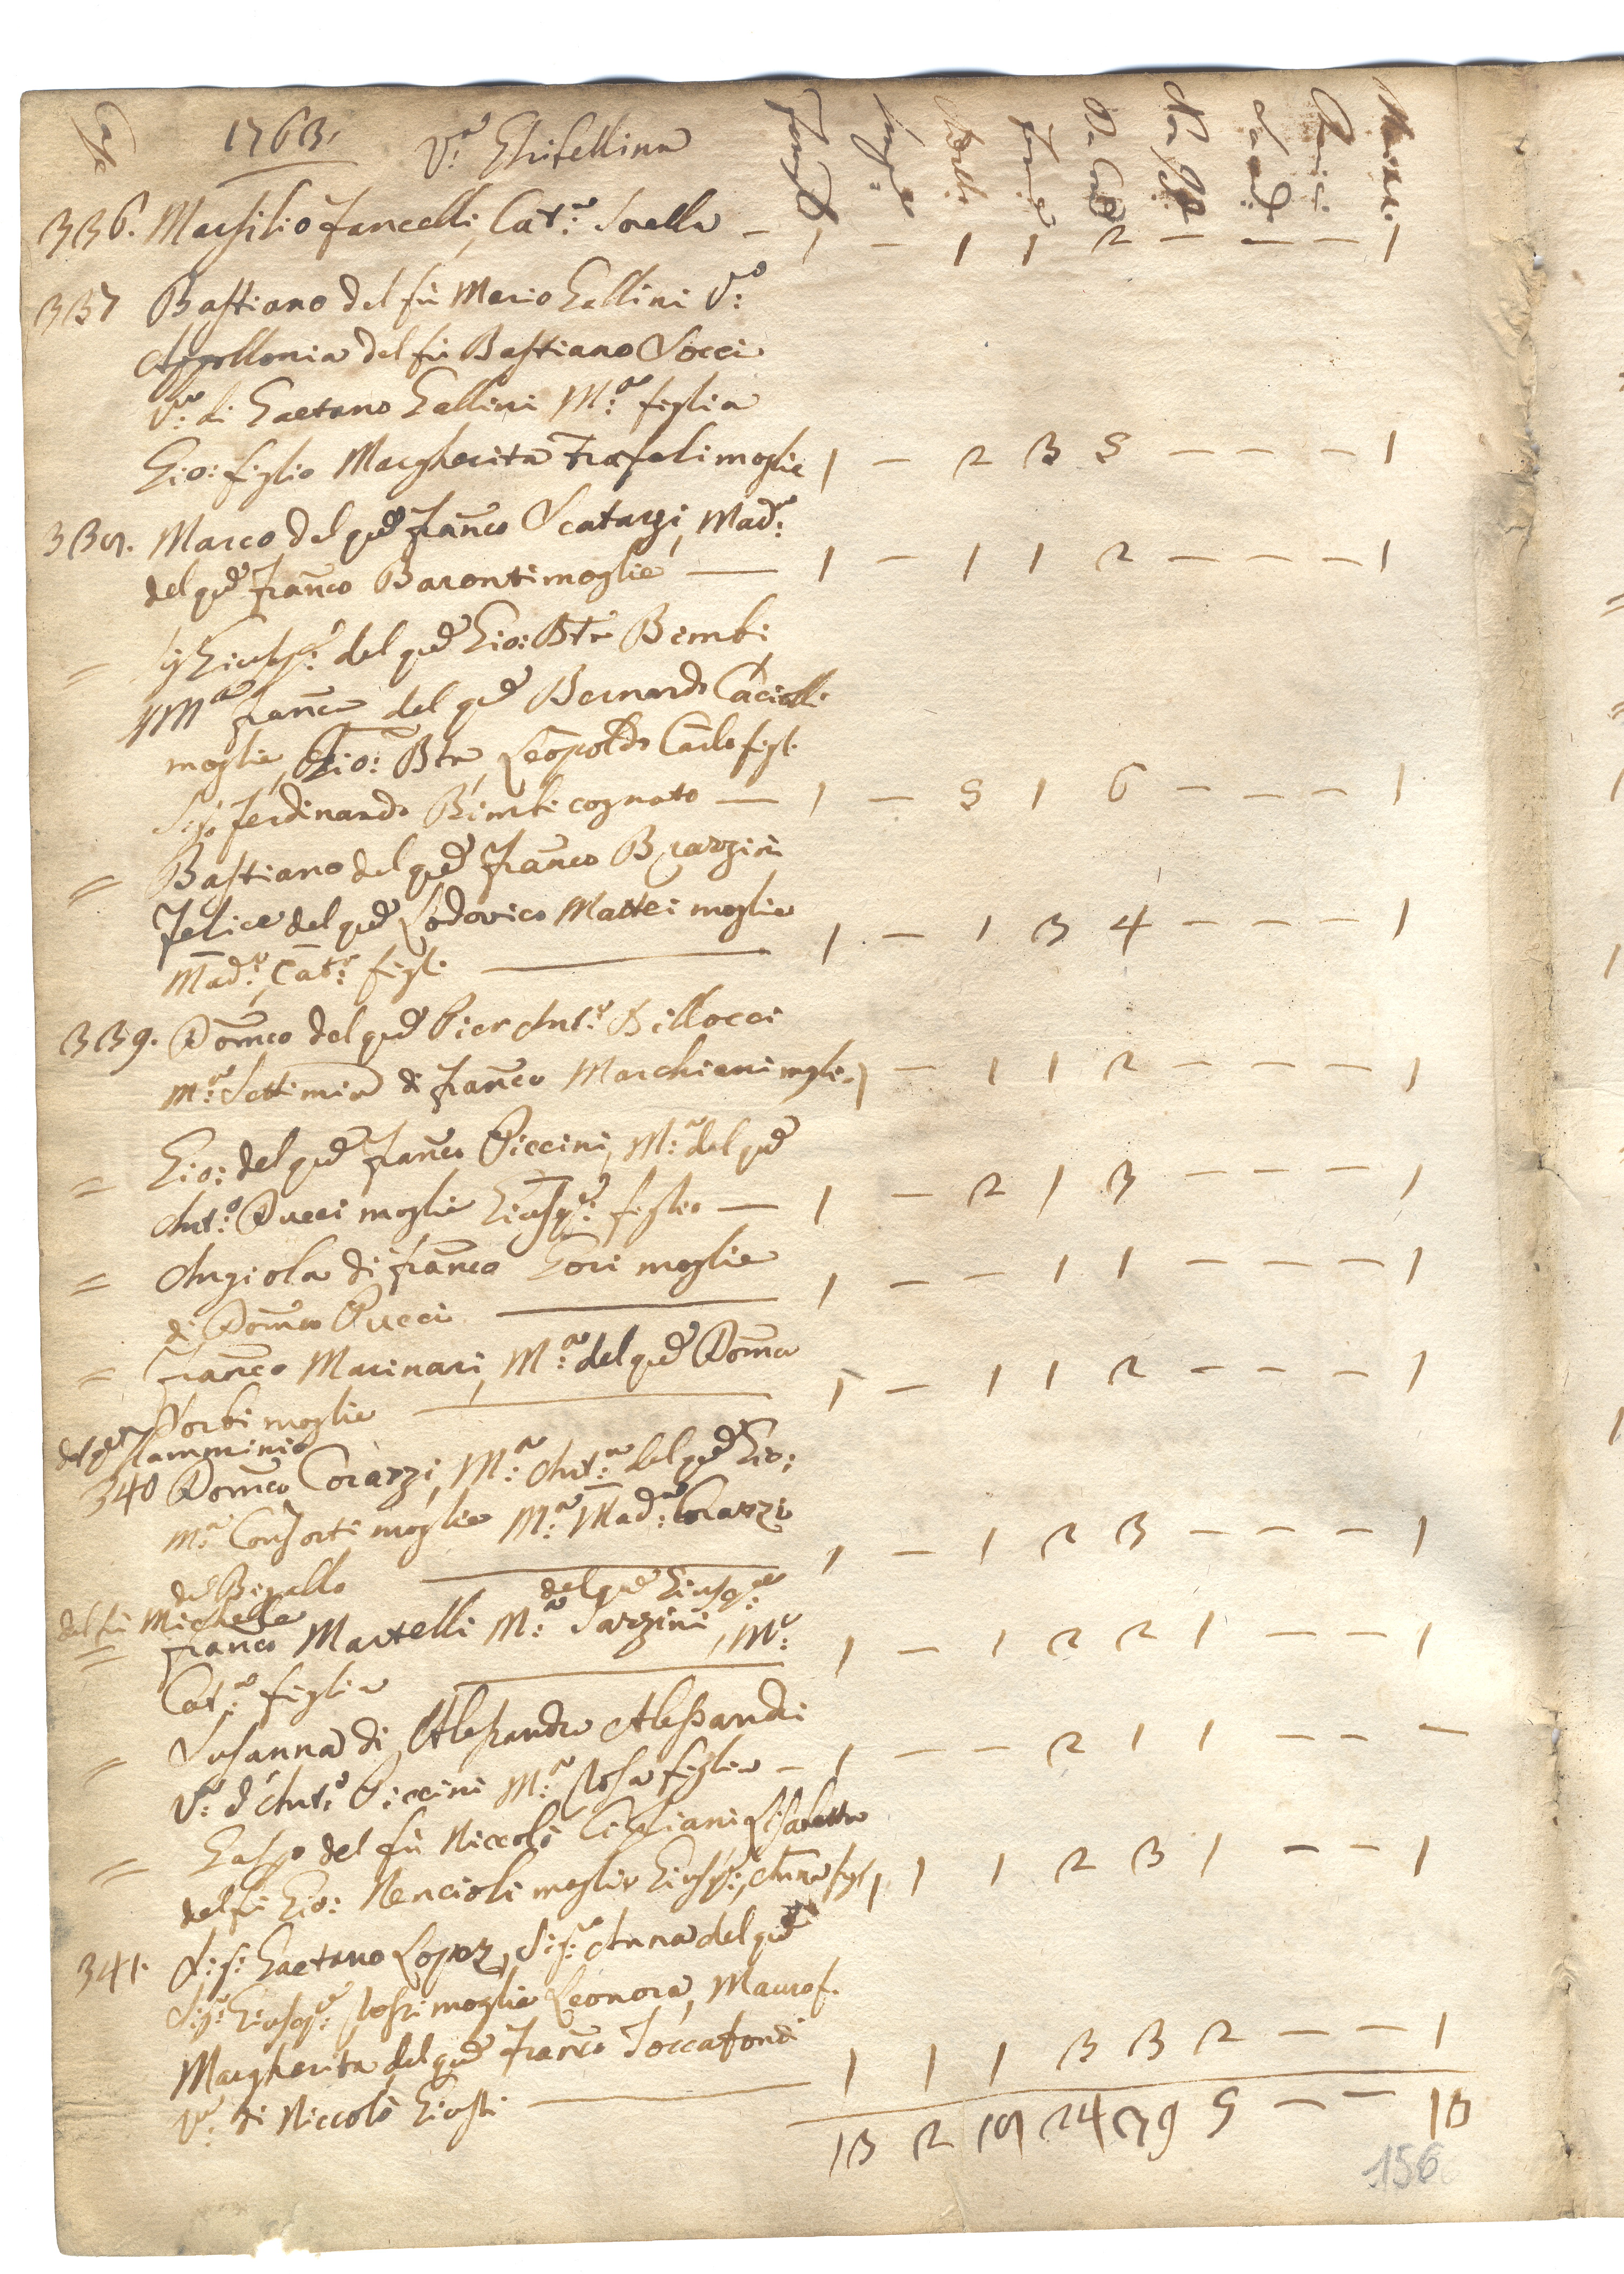 Case 1763. V.a Ghibellina Famigl. Masch. Fem.e Da Com.
336. Marsilio Fancelli, Cat.a Sorella — 1 — 1 1 2 — — — 1
337 Bastiano del fù Mario Gallini V.o
Appollonia del fù Bastiano Socci
V.a di Gaetano Gallini M.a figlia
Gio: figlio Margherita Trafeli moglie 1 — 2 3 5 — — — 1
338. Marco del qd Franco Scatarzi, Mad.a
del qd Franco Baronti moglie — 1 — 1 1 2 — — — 1
= Giusep.e del qd Gio: Bta Bimbi
M.a Franca del qd Bernardo Cacialli
moglie, Gio: Bta, Leopoldo Carlo figl.
Ferdinando Bimbi cognato — 1 — 5 1 6 — — — 1
= Bastiano del qd Franco Brazzini
Felice del qd Lodovico Mattei moglie
Mad.a, Cat.a figl. — 1 — 1 3 4 — — — 1
339. Domco del qd Pier Ant.o Billocci
M.a Settimia di Franco Marchiani moglie 1 — 1 1 2 — — — 1
= Gio: del qd Franco Piccini, M.a del qd
Ant.o Pucci moglie Giusep.e figlio — 1 — 2 1 3 — — — 1
= Angiola di Franco Gori moglie
di Domco Pucci — 1 — — 1 1 — — — 1
= Franco Marinari, M.a del qd Domco
Sorbi moglie — 1 — 1 1 2 — — — 1
del qd Flamminio
340 Domco Corazzi, M.a Ant.a del qd Gio:
M.a Consorti moglie M.a Mad.a Corazzi
del Bigallo — 1 — 1 2 3 — — — 1
del fù Michele del qd Giusep.e
= Franco Martelli M.a Sarzini, M.a
Cat.a figlia — 1 — 1 2 2 1 — — 1
= Susanna di Alessandro Alessandri
V.a d'Ant.o Piccini M.a Rosa figlia — 1 — — 2 1 1 — — —
= Gaspo del fù Niccolò Cipriani Lisabetta
del fù Gio: Nencioli moglie Giusep.e, Anna figl. 1 1 1 2 3 1 — — 1
341. S:r Gaetano Lopez, Sig.a Anna del qd
Sig.r Giusep.e moglie Leonora, Mauro f.
Margherita del qd Franco Toccafondi
V.a di Niccolò Giusti — 1 1 1 3 3 2 — — 1
13 2 18 24 39 5 — — 13
156